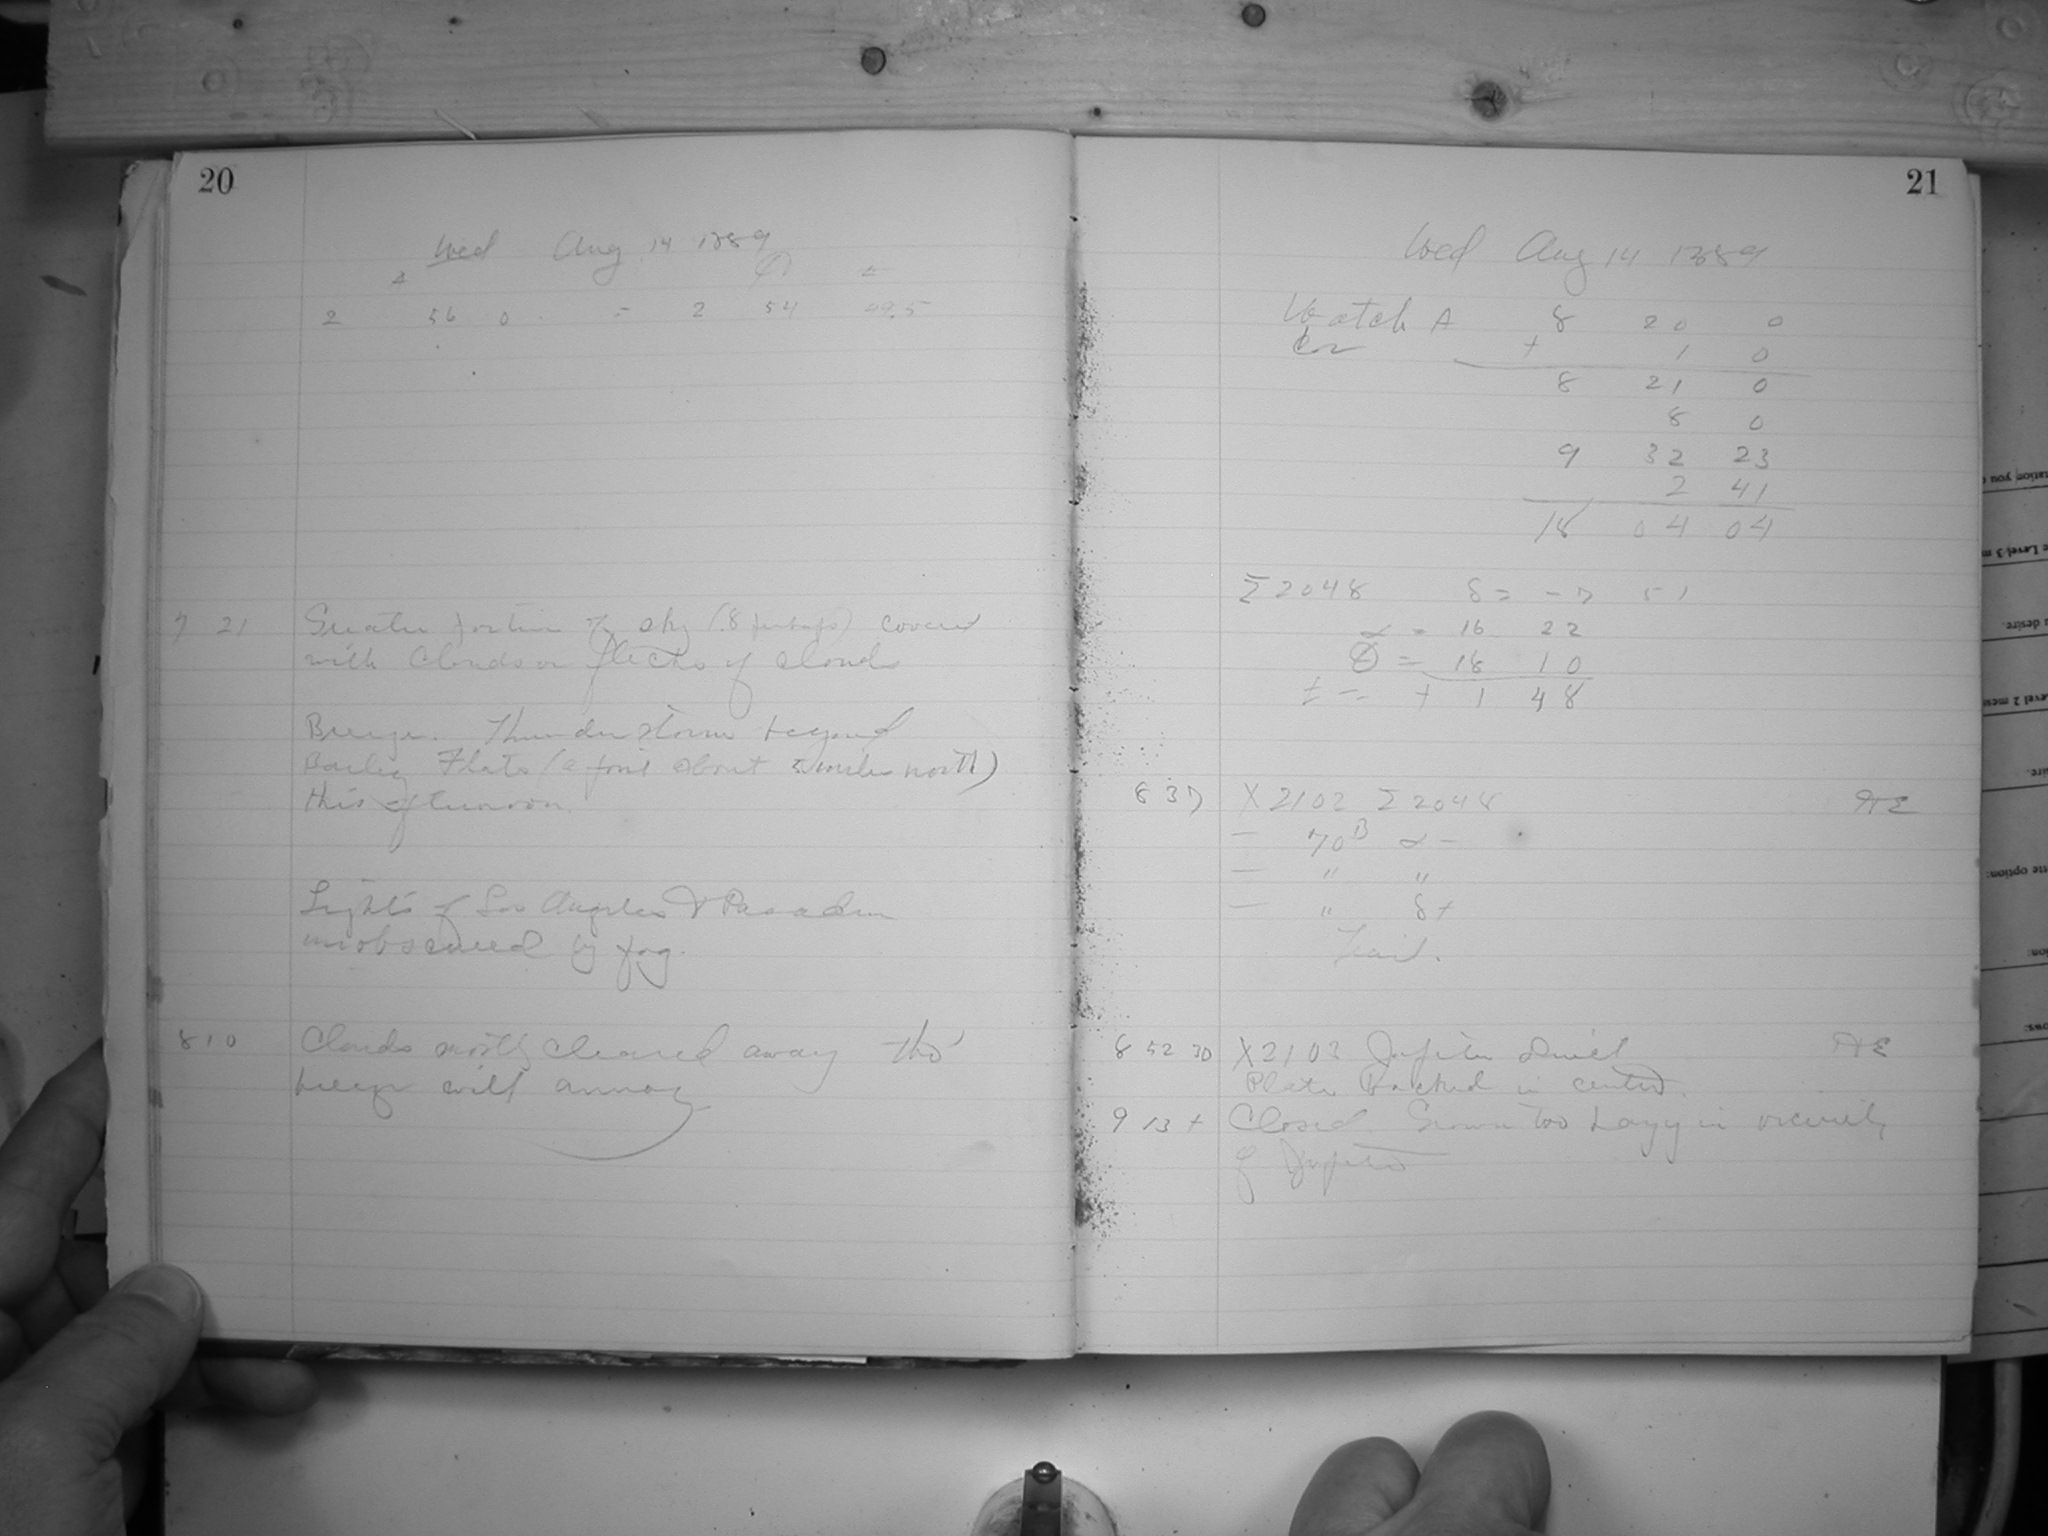 20
Wed Aug 14 1889
2 56 0 = 2 54 49.5
7 21 Greater portion of sky (.8 perhaps) covered
with Clouds or flecks of clouds
Breeze. Thunderstorm beyond
Barley Flats (a point about 5 miles north)
this afternoon.
Lights of Los Angeles & Pasadena
unobscured by fog.
8 10 Clouds mostly cleared away tho'
breeze will annoy
21
Wed Aug 14 1889
Watch A 8 20 0
Cor + 1 0
8 21 0
8 0
9 32 23
2 41
18 04 04
Σ 2048 δ = -7 51
α = 16 22
= 18 10
t = + 1 48
8 37 X 2102 Σ 2048
— 70 B α -
— " "
— " δ +
Trail.
8 52 30 X 2103 Jupiter Direct
Plate backed in center.
9 13 + Closed. Grown too hazy in vicinity
of Jupiter